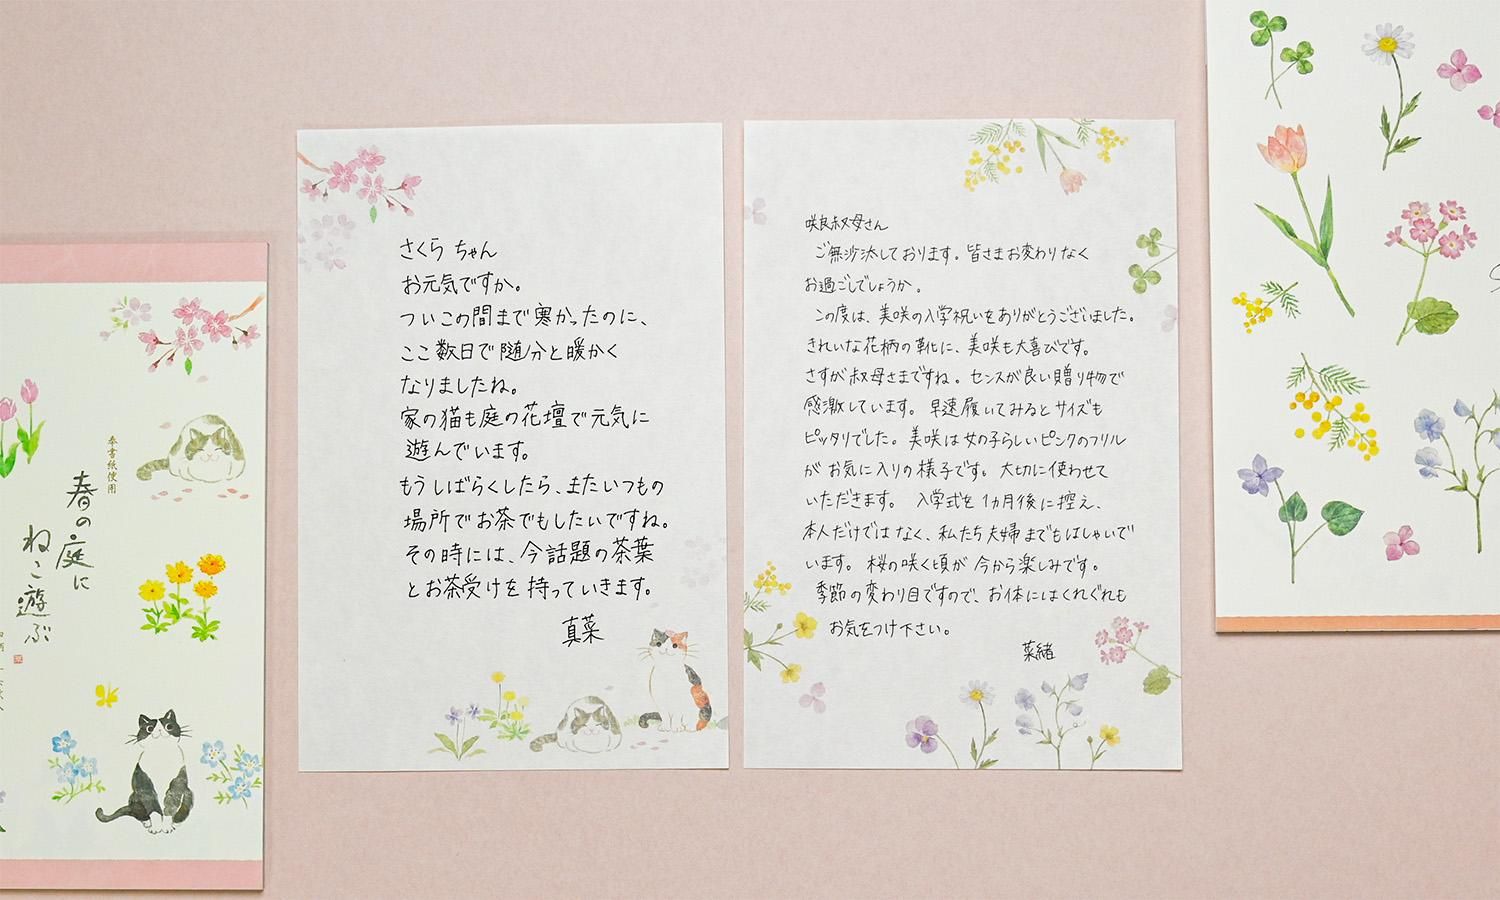 さくらちゃん
お元気ですか。
ついこの間まで寒かったのに、
ここ数日で随分と暖かく
なりましたね。
家の猫も庭の花壇で元気に
遊んでいます。
もうしばらくしたら、またいつもの
場所でお茶でもしたいですね。
その時には、今話題の茶葉
とお茶受けを持っていきます。
真菜
咲良叔母さん
ご無沙汰しております。皆さまお変わりなく
お過ごしでしょうか。
この度は、美咲の入学祝いをありがとうございました。
きれいな花柄の靴に、美咲も大喜びです。
さすが叔母さまですね。センスが良い贈り物で
感激しています。早速履いてみるとサイズも
ピッタリでした。美咲は女の子らしいピンクのフリル
がお気に入りの様子です。大切に使わせて
いただきます。入学式を1カ月後に控え、
本人だけではなく、私たち夫婦までもはしゃいで
います。桜の咲く頃が今から楽しみです。
季節の変わり目ですので、お体にはくれぐれも
お気をつけ下さい。
菜緒
奉書紙使用
春の庭に
ねこ遊ぶ